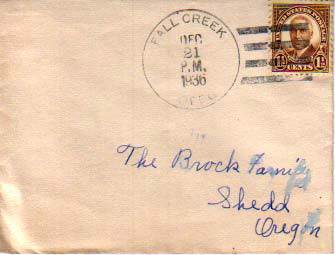 FALL CREEK
DEC
21
P.M.
1936
OREG
UNITED STATES POSTAGE
1½ CENTS 1½
The Brock Family
Shedd
Oregon